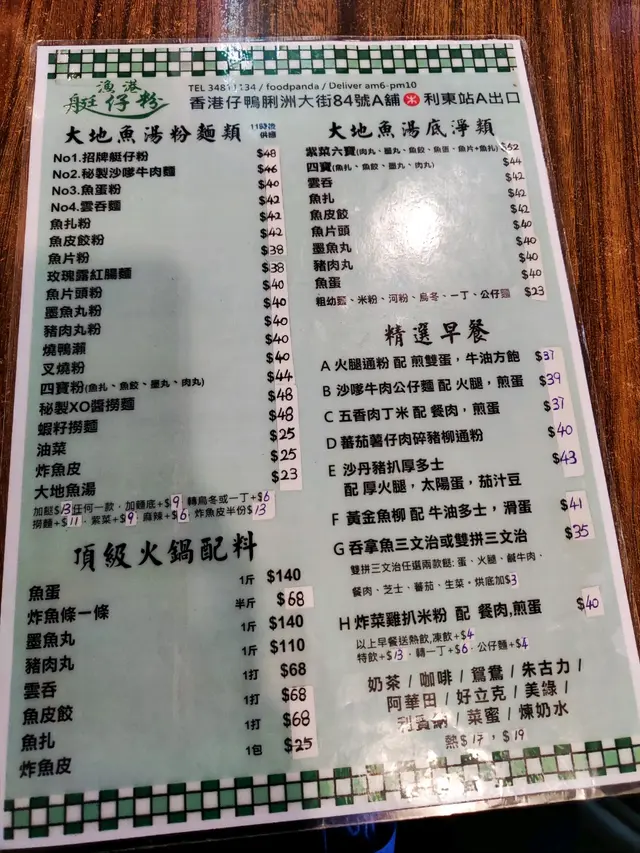 漁港
艇仔粉
TEL 34811134 / foodpanda / Deliver am6-pm10
香港仔鴨脷洲大街84號A舖 利東站A出口
大地魚湯粉麵類 11時後供應
No1.招牌艇仔粉 $48
No2.秘製沙嗲牛肉麵 $46
No3.魚蛋粉 $40
No4.雲吞麵 $42
魚扎粉 $42
魚皮餃粉 $42
魚片粉 $38
玫瑰露紅腸麵 $38
魚片頭粉 $40
墨魚丸粉 $40
豬肉丸粉 $40
燒鴨瀨 $40
叉燒粉 $40
四寶粉(魚扎、魚餃、墨丸、肉丸) $44
秘製XO醬撈麵 $48
蝦籽撈麵 $48
油菜 $25
炸魚皮 $25
大地魚湯 $23
加餸$13任何一款．加麵底+$9 轉烏冬或一丁+$6
撈麵+$11．紫菜+$9 麻辣+$6 炸魚皮半份$13
頂級火鍋配料
魚蛋 1斤 $140
炸魚條一條 半斤 $68
墨魚丸 1斤 $140
豬肉丸 1斤 $110
雲吞 1打 $68
魚皮餃 1打 $68
魚扎 1打 $68
炸魚皮 1包 $25
大地魚湯底淨類
紫菜六寶(肉丸、墨丸、魚餃、魚蛋、魚片+魚扎) $62
四寶(魚扎、魚餃、墨丸、肉丸) $44
雲吞 $42
魚扎 $42
魚皮餃 $42
魚片頭 $40
墨魚丸 $40
豬肉丸 $40
魚蛋 $40
粗幼麵、米粉、河粉、烏冬、一丁、公仔麵 $23
精選早餐
A 火腿通粉 配 煎雙蛋，牛油方飽 $37
B 沙嗲牛肉公仔麵 配 火腿，煎蛋 $39
C 五香肉丁米 配 餐肉，煎蛋 $37
D 蕃茄薯仔肉碎豬柳通粉 $40
E 沙丹豬扒厚多士 $43
配 厚火腿，太陽蛋，茄汁豆
F 黃金魚柳 配 牛油多士，滑蛋 $41
G 吞拿魚三文治或雙拼三文治 $35
雙拼三文治任選兩款餸: 蛋、火腿、鹹牛肉、
餐肉、芝士、蕃茄、生菜，烘底加$3
H 炸菜雞扒米粉 配 餐肉,煎蛋 $40
以上早餐送熱飲,凍飲+$4
特飲+$13．轉一丁+$6．公仔麵+$4
奶茶 / 咖啡 / 鴛鴦 / 朱古力 /
阿華田 / 好立克 / 美綠 /
利賓納 / 菜蜜 / 煉奶水
熱$17，$19